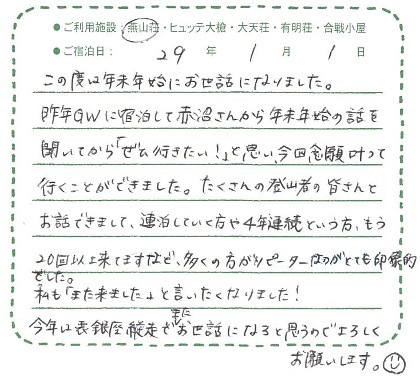 ●ご利用施設：燕山荘・ヒュッテ大槍・大天荘・有明荘・合戦小屋
●ご宿泊日： 29 年 1 月 1 日
この度は年末年始にお世話になりました。
昨年GWに宿泊して赤沼さんから年末年始の話を
聞いてから「ぜひ行きたい！」と思い、今回念願叶って
行くことができました。たくさんの登山者の皆さんと
お話できまして、連泊していく方や4年連続という方、もう
20回以上来てますなど、多くの方がリピーターなのがとても印象的
でした。
私も「また来ました」と言いたくなりました！
今年は表銀座縦走でまたお世話になると思うのでよろしく
お願いします。